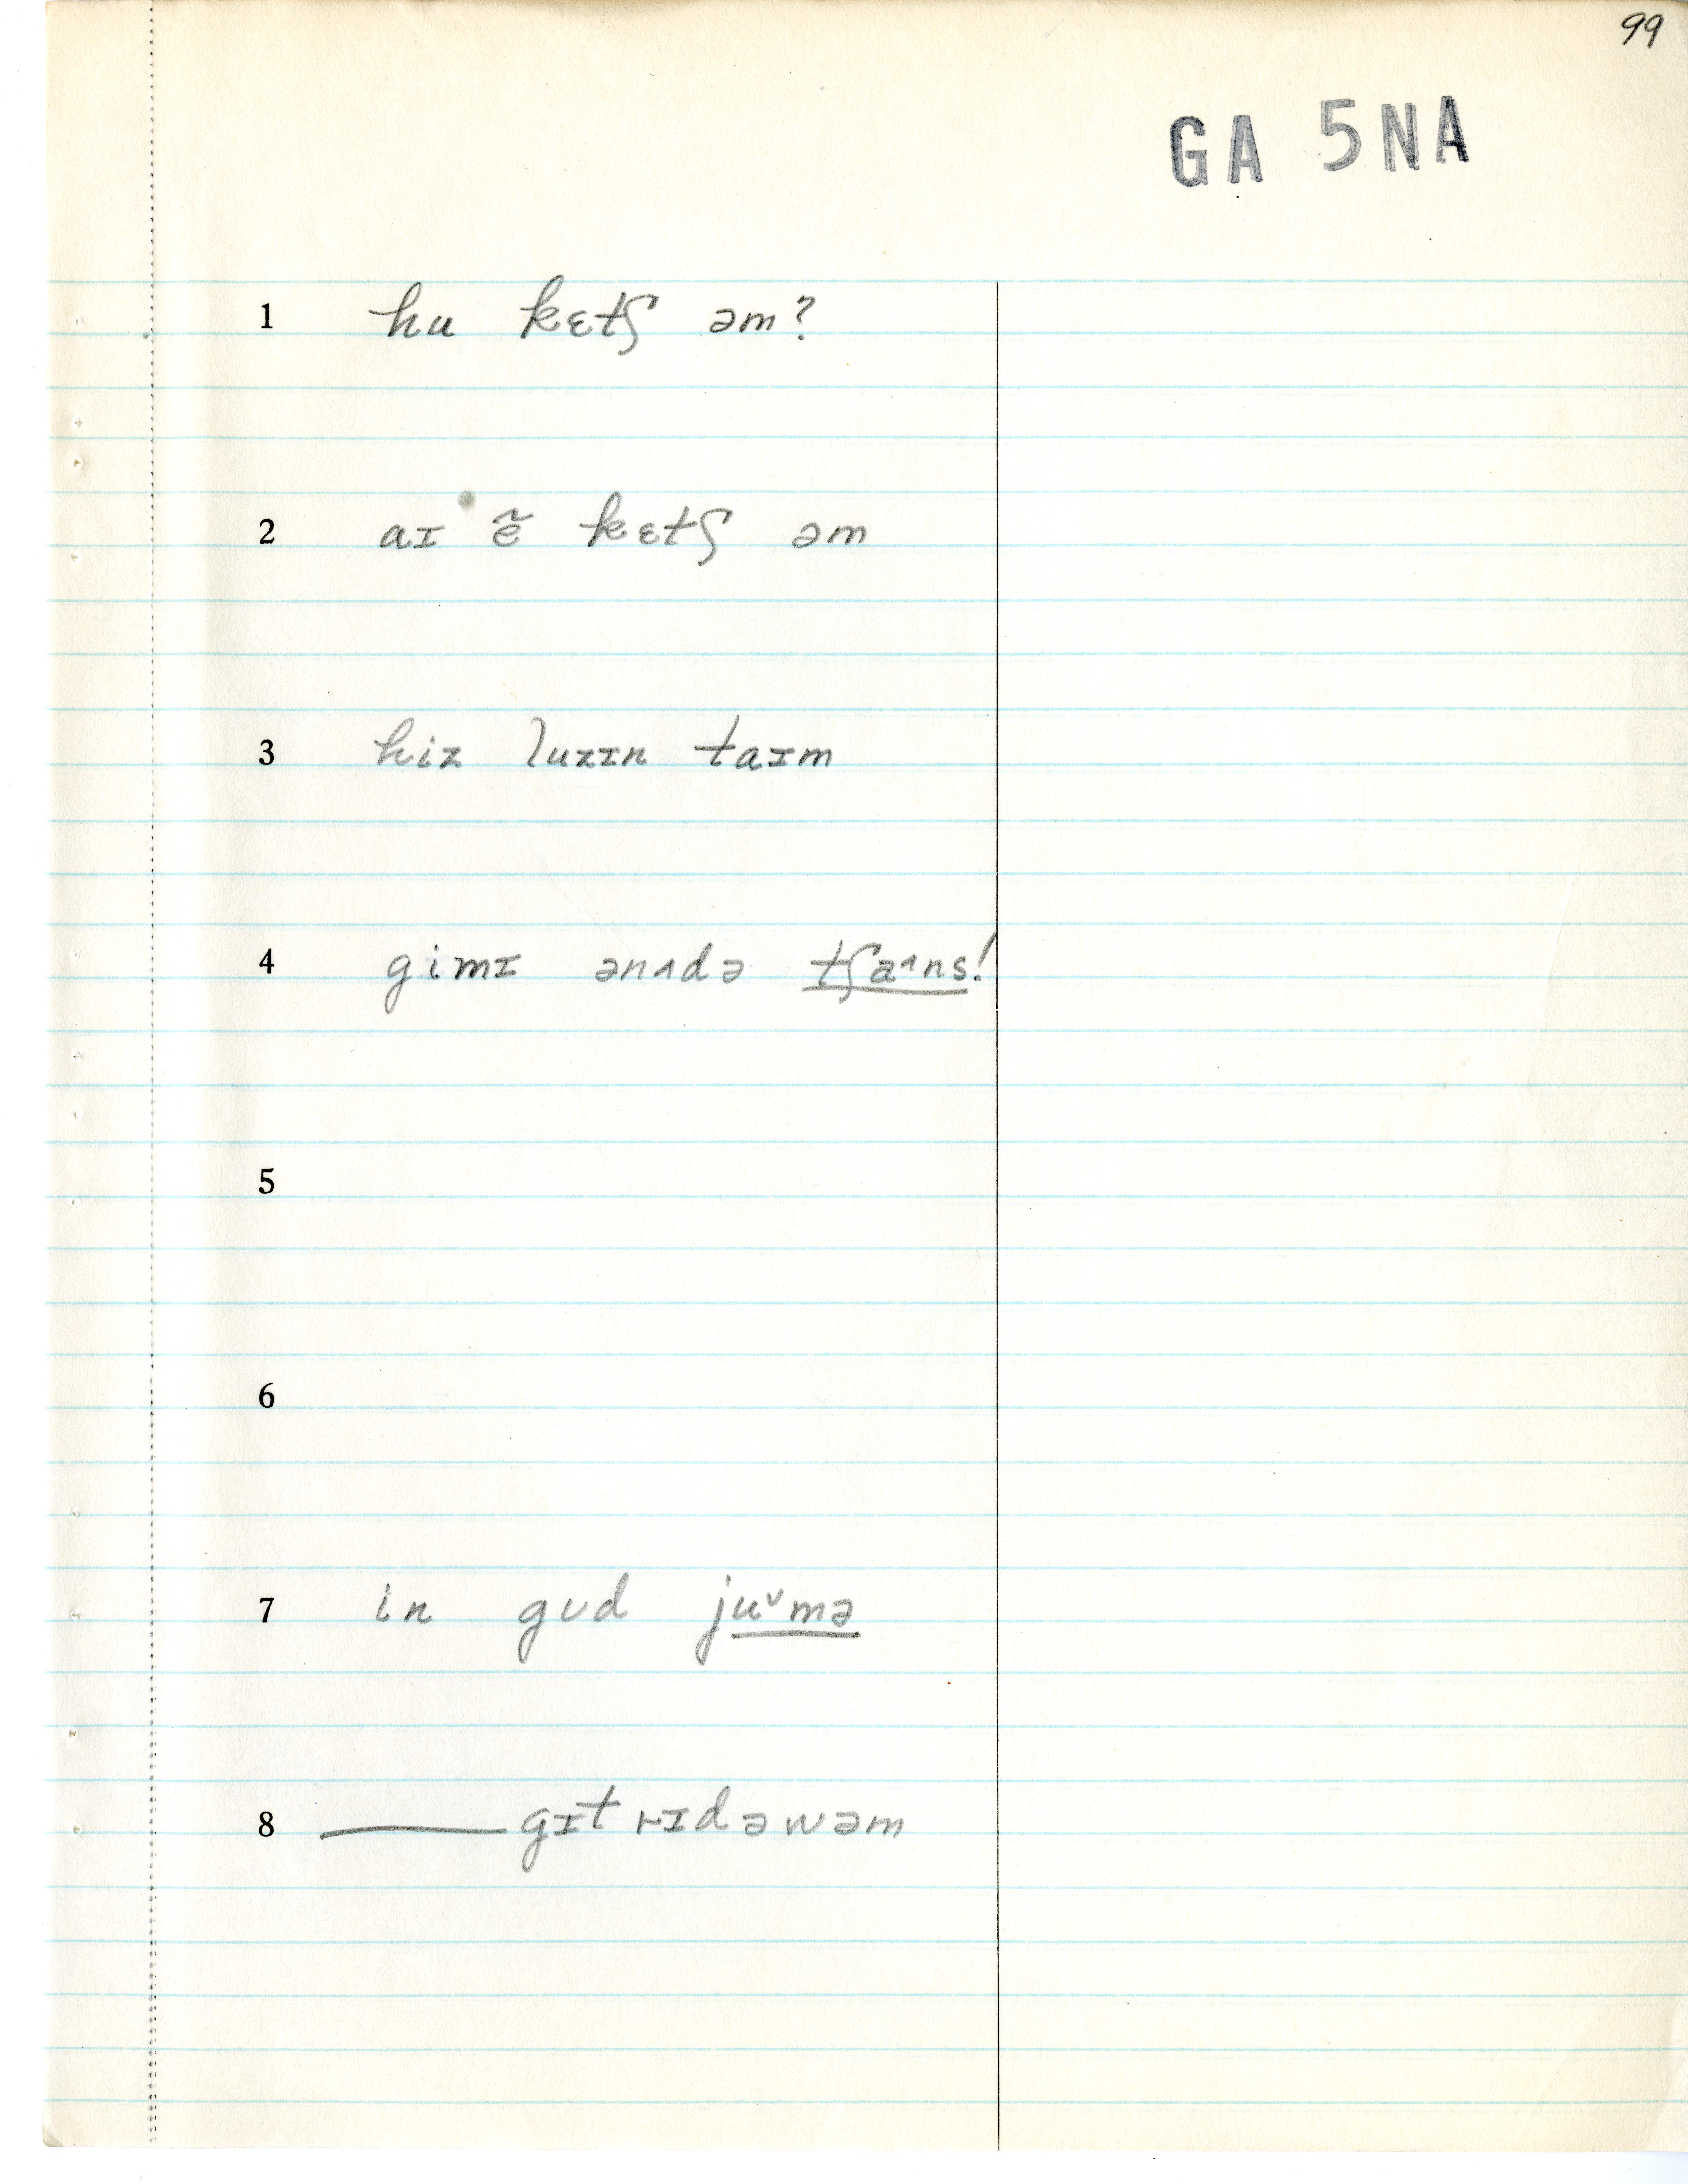 99
GA 5NA
1 hu kɛtʃ əm?
2 aɪ ẽ kɛtʃ əm
3 hiz luzɪn taɪm
4 gimɪ ənʌdə tʃa˄ns!
5
6
7 in gʊd ju˅mə
8 ——— gɪt rɪdəwəm